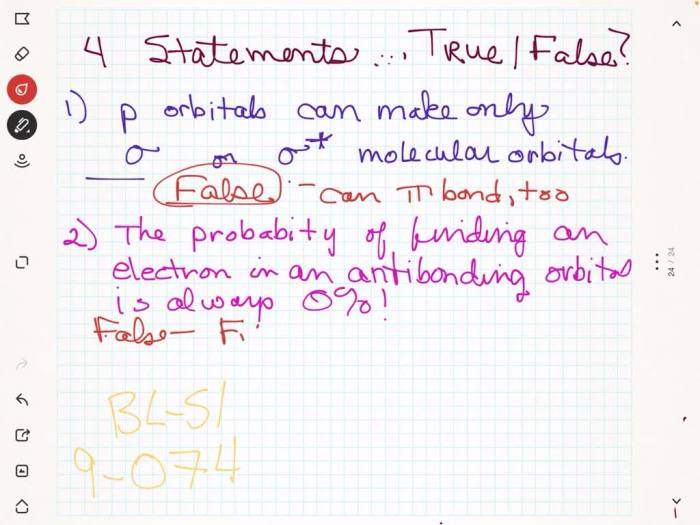 4 Statements ... True/False?
1) p orbitals can make only
σ or σ* molecular orbitals.
False - can π bond, too
2) The probabity of finding an
electron in an antibonding orbital
is always 0%!
False - F.
BL-S1
9-074
24 / 24